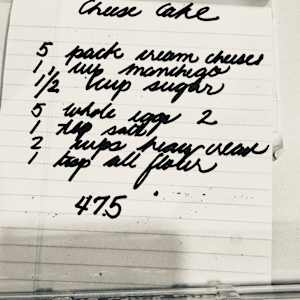 Cheese Cake
5 pack cream cheeses
1, cup manchego
1/2 cup sugar
5 whole eggs 2
1 tsp salt
2 cups heavy cream
1 tbsp all flour
475